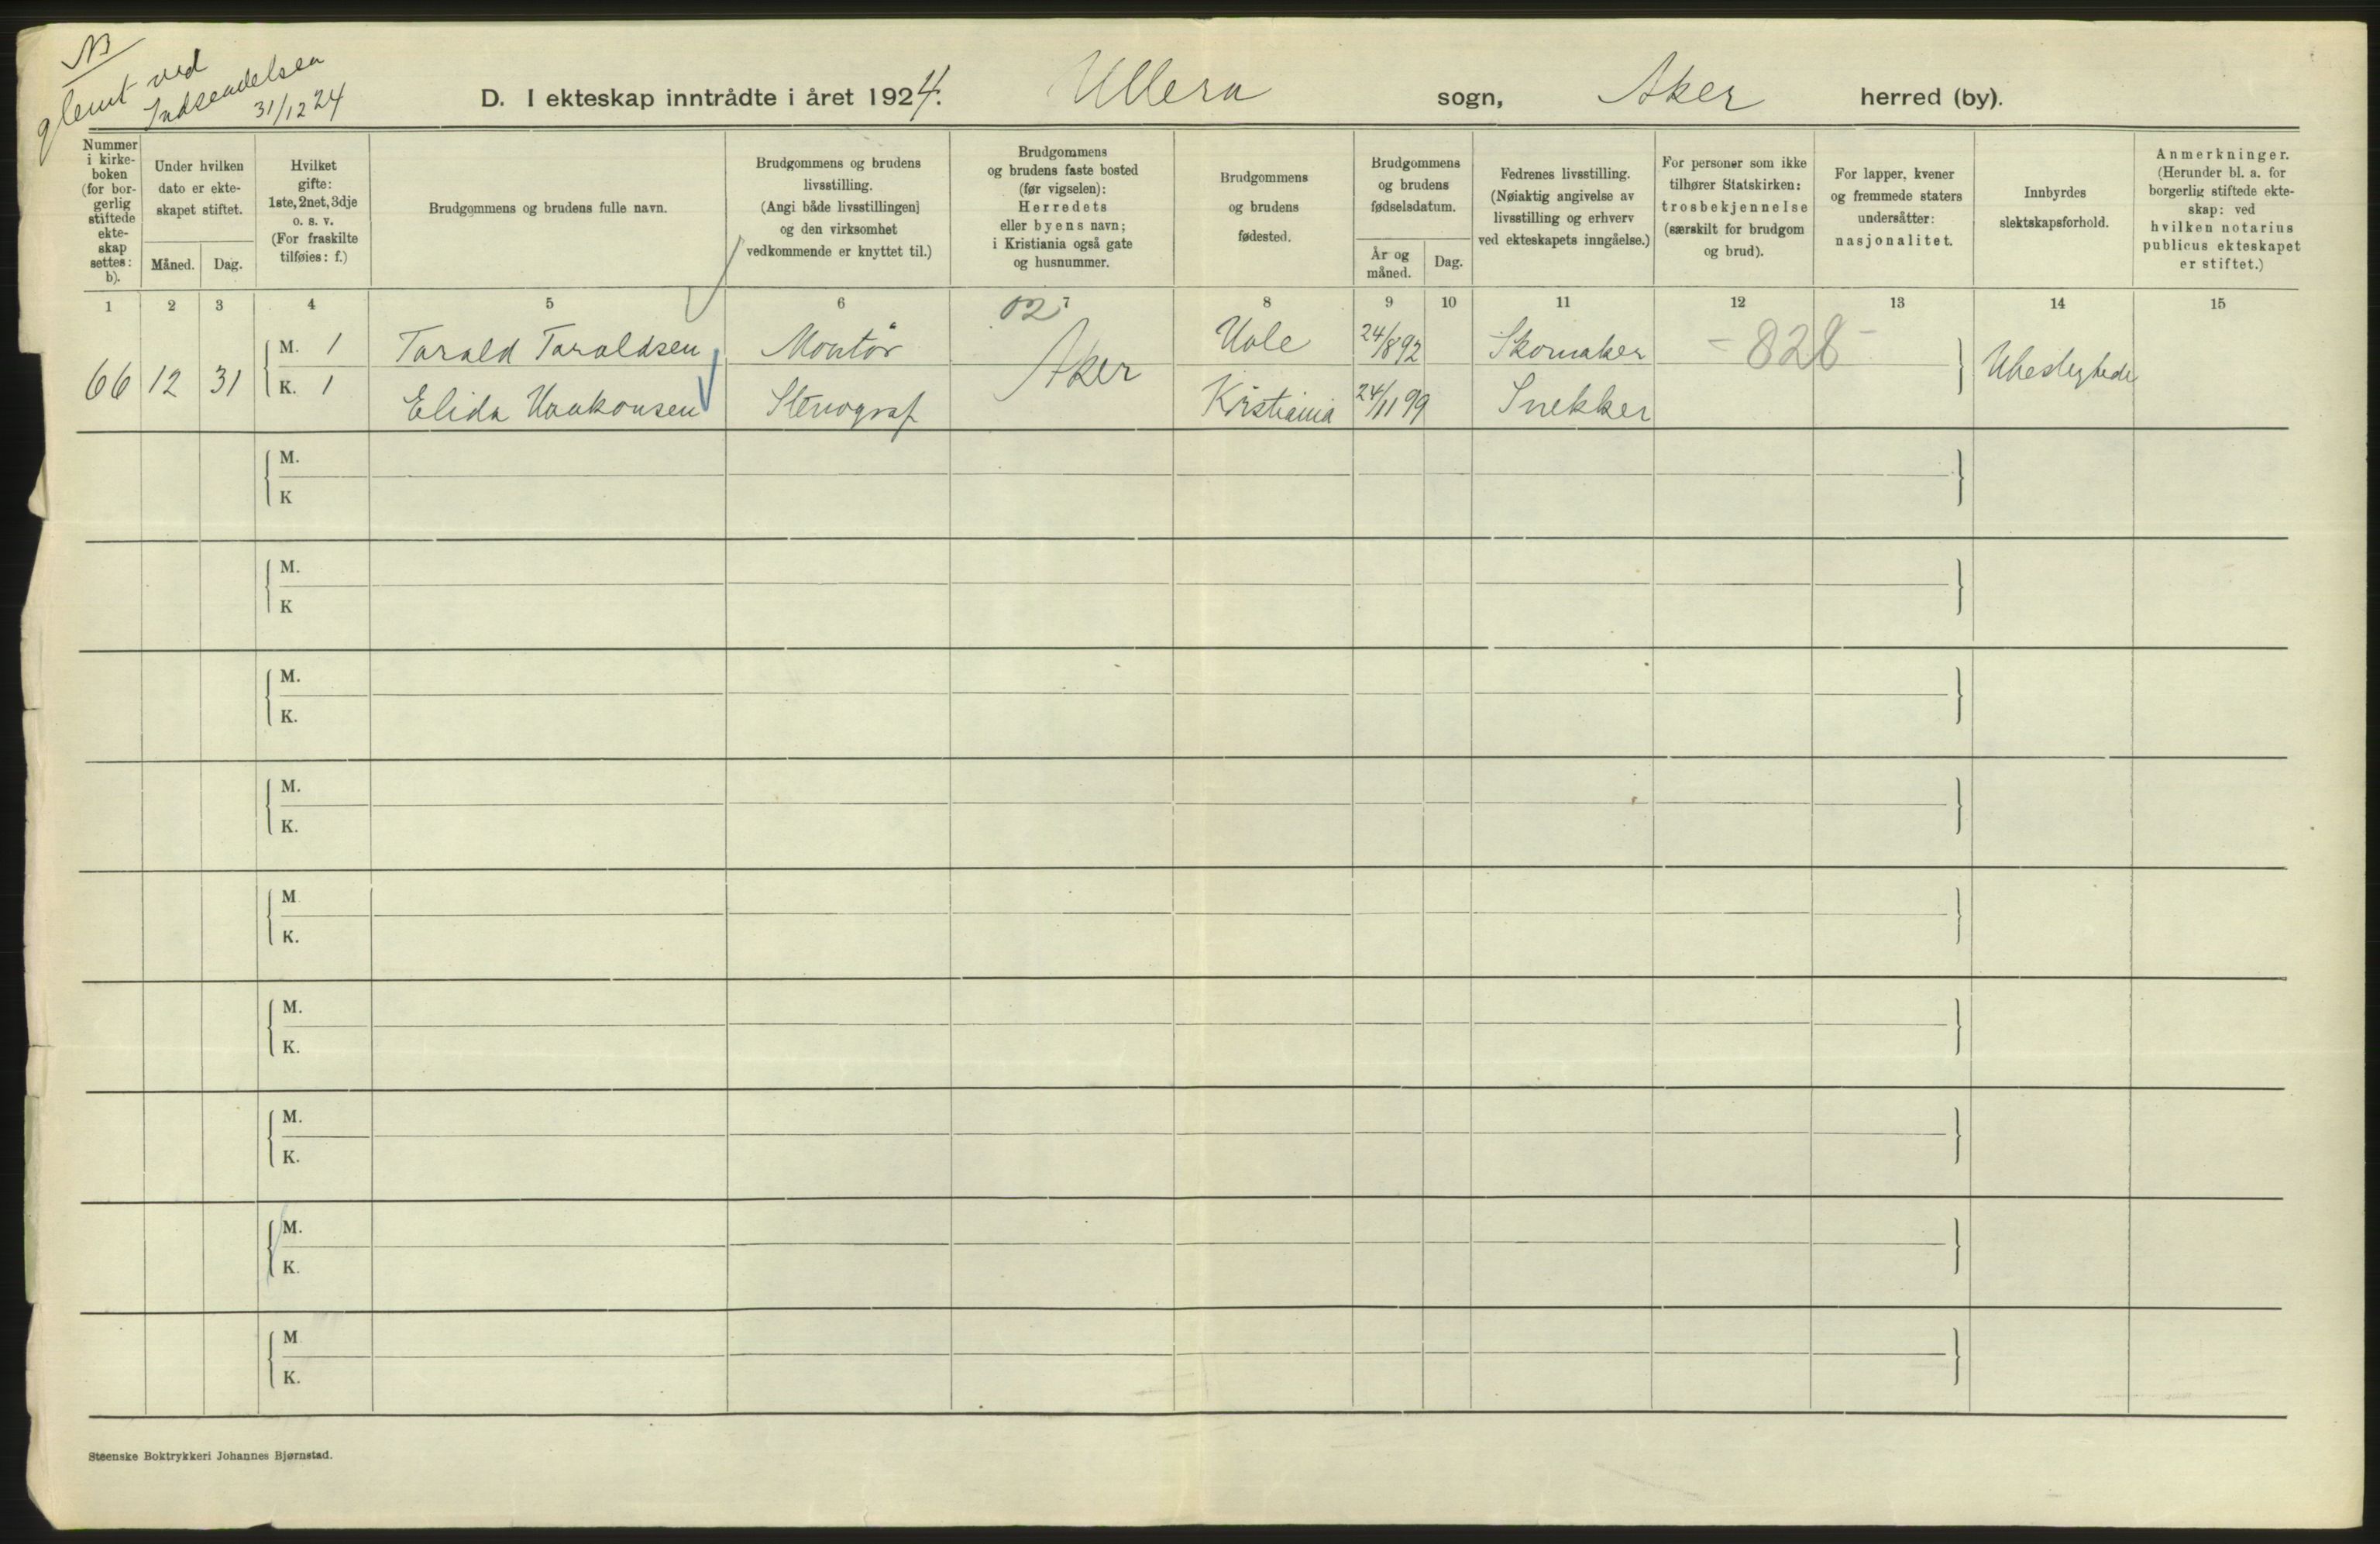 NB
glemt ved
Indsendelsen
31/12 24
D. I ekteskap inntrådte i året 1924. Ullern sogn, Aker herred (by).
Nummer i kirke-boken (for bor-gerlig stiftede ekte-skap settes: b).
Under hvilken dato er ekte-skapet stiftet.
Måned. Dag.
Hvilket gifte: 1ste, 2net, 3dje o. s. v. (For fraskilte tilføies: f.)
Brudgommens og brudens fulle navn.
Brudgommens og brudens livsstilling. (Angi både livsstillingen) og den virksomhet vedkommende er knyttet til.)
Brudgommens og brudens faste bosted (før vigselen): Herredets eller byens navn; i Kristiania også gate og husnummer.
Brudgommens og brudens fødested.
Brudgommens og brudens fødselsdatum.
År og måned. Dag.
Fedrenes livsstilling. (Nøiaktig angivelse av livsstilling og erhverv ved ekteskapets inngåelse.)
For personer som ikke tilhører Statskirken: trosbekjennelse (særskilt for brudgom og brud).
For lapper, kvener og fremmede staters undersåtter: nasjonalitet.
Innbyrdes slektskapsforhold.
Anmerkninger. (Herunder bl. a. for borgerlig stiftede ekte-skap: ved hvilken notarius publicus ekteskapet er stiftet.)
1 2 3 4 5 6 7 8 9 10 11 12 13 14 15
02
66 12 31 M. 1 Tarald Taraldsen Montør Aker Hole 24/8 92 Skomaker - 828 - Ubeslegtede
K. 1 Elida Haakonsen Stenograf Kristiania 24/11 99 Snekker
M.
K
M.
K
M.
K.
M.
K.
M
K.
M.
K.
M.
K.
M.
K.
M
K.
Steenske Boktrykkeri Johannes Bjørnstad.